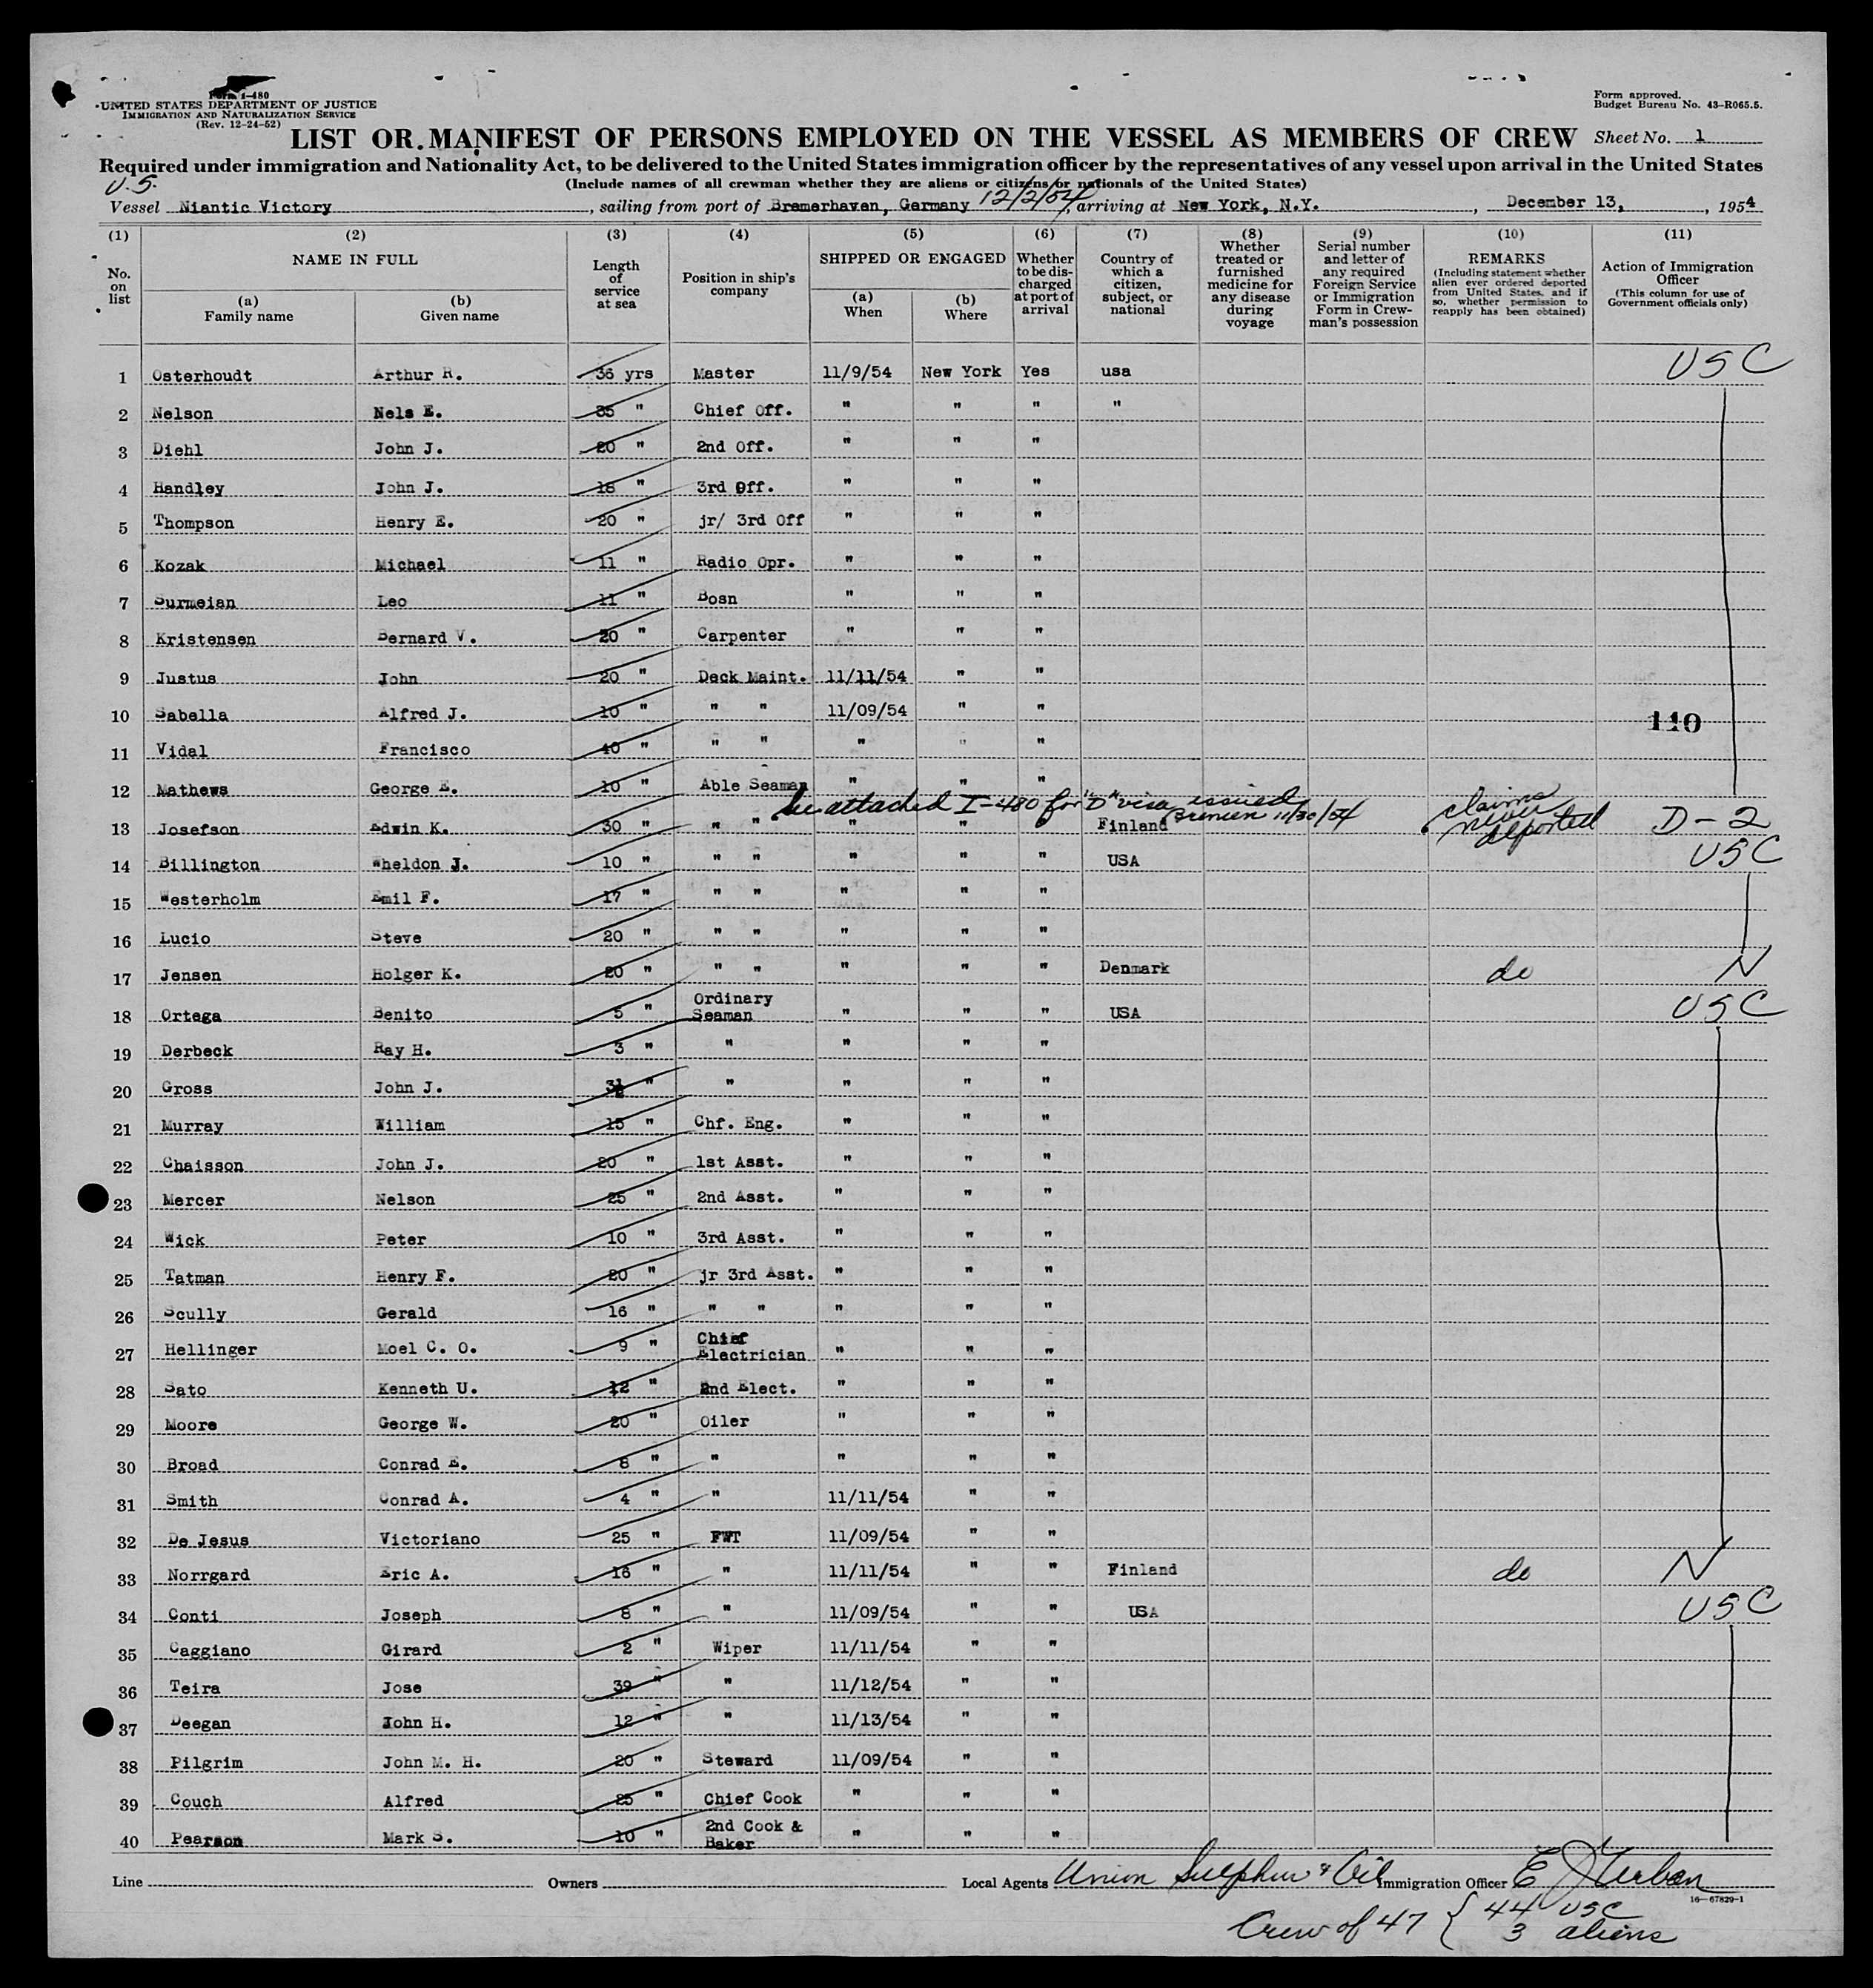 Form I-480
UNITED STATES DEPARTMENT OF JUSTICE
IMMIGRATION AND NATURALIZATION SERVICE
(Rev. 12-24-52)
Form approved.
Budget Bureau No. 43-R065.5.
LIST OR MANIFEST OF PERSONS EMPLOYED ON THE VESSEL AS MEMBERS OF CREW Sheet No. 1
Required under immigration and Nationality Act, to be delivered to the United States immigration officer by the representatives of any vessel upon arrival in the United States
U.S. (Include names of all crewman whether they are aliens or citizens or nationals of the United States)
Vessel Niantic Victory, sailing from port of Bremerhaven, Germany 12/2/54, arriving at New York, N.Y., December 13, 1954
(1) No. on list
(2) NAME IN FULL (a) Family name (b) Given name
(3) Length of service at sea
(4) Position in ship's company
(5) SHIPPED OR ENGAGED (a) When (b) Where
(6) Whether to be discharged at port of arrival
(7) Country of which a citizen, subject, or national
(8) Whether treated or furnished medicine for any disease during voyage
(9) Serial number and letter of any required Foreign Service or Immigration Form in Crewman's possession
(10) REMARKS (Including statement whether alien ever ordered deported from United States, and if so, whether permission to reapply has been obtained)
(11) Action of Immigration Officer (This column for use of Government officials only)
1 Osterhoudt Arthur R. 36 yrs Master 11/9/54 New York Yes usa USC
2 Nelson Nels E. 35 " Chief Off. " " " "
3 Diehl John J. 20 " 2nd Off. " " "
4 Handley John J. 18 " 3rd Off. " " "
5 Thompson Henry E. 20 " jr/ 3rd Off " " "
6 Kozak Michael 11 " Radio Opr. " " "
7 Surmeian Leo 11 " Bosn " " "
8 Kristensen Bernard V. 20 " Carpenter " " "
9 Justus John 20 " Deck Maint. 11/11/54 " "
10 Sabella Alfred J. 10 " " " 11/09/54 " " 110
11 Vidal Francisco 40 " " " " " "
12 Mathews George E. 10 " Able Seaman " " "
See attached I-480 for "D" visa issued Bremen 11/30/54
13 Josefson Edwin K. 30 " " " " " Finland claims never deported D-2
14 Billington Wheldon J. 10 " " " " " " USA USC
15 Westerholm Emil F. 17 " " " " " "
16 Lucio Steve 20 " " " " " "
17 Jensen Holger K. 20 " " " " " " Denmark do N
18 Ortega Benito 5 " Ordinary Seaman " " " USA USC
19 Derbeck Ray H. 3 " " " " "
20 Gross John J. " " " " "
21 Murray William 15 " Chf. Eng. " " "
22 Chaisson John J. 20 " 1st Asst. " " "
23 Mercer Nelson 25 " 2nd Asst. " " "
24 Wick Peter 10 " 3rd Asst. " " "
25 Tatman Henry F. 20 " jr 3rd Asst. " " "
26 Scully Gerald 16 " " " " " "
27 Hellinger Moel C. O. 9 " Chief Electrician " " "
28 Sato Kenneth U. 12 " 2nd Elect. " " "
29 Moore George W. 20 " Oiler " " "
30 Broad Conrad E. 8 " " " " "
31 Smith Conrad A. 4 " " 11/11/54 " "
32 De Jesus Victoriano 25 " FWT 11/09/54 " "
33 Norrgard Eric A. 16 " " 11/11/54 " " Finland do N
34 Conti Joseph 8 " " 11/09/54 " " USA USC
35 Caggiano Girard 2 " Wiper 11/11/54 " "
36 Teira Jose 39 " " 11/12/54 " "
37 Deegan John H. 12 " " 11/13/54 " "
38 Pilgrim John M. H. 20 " Steward 11/09/54 " "
39 Couch Alfred 25 " Chief Cook " " "
40 Pearson Mark S. 10 " 2nd Cook & Baker " " "
Line Owners Local Agents Union Sulphur & Oil Immigration Officer E J
16-67829-1
Crew of 47 { 44 USC
3 aliens